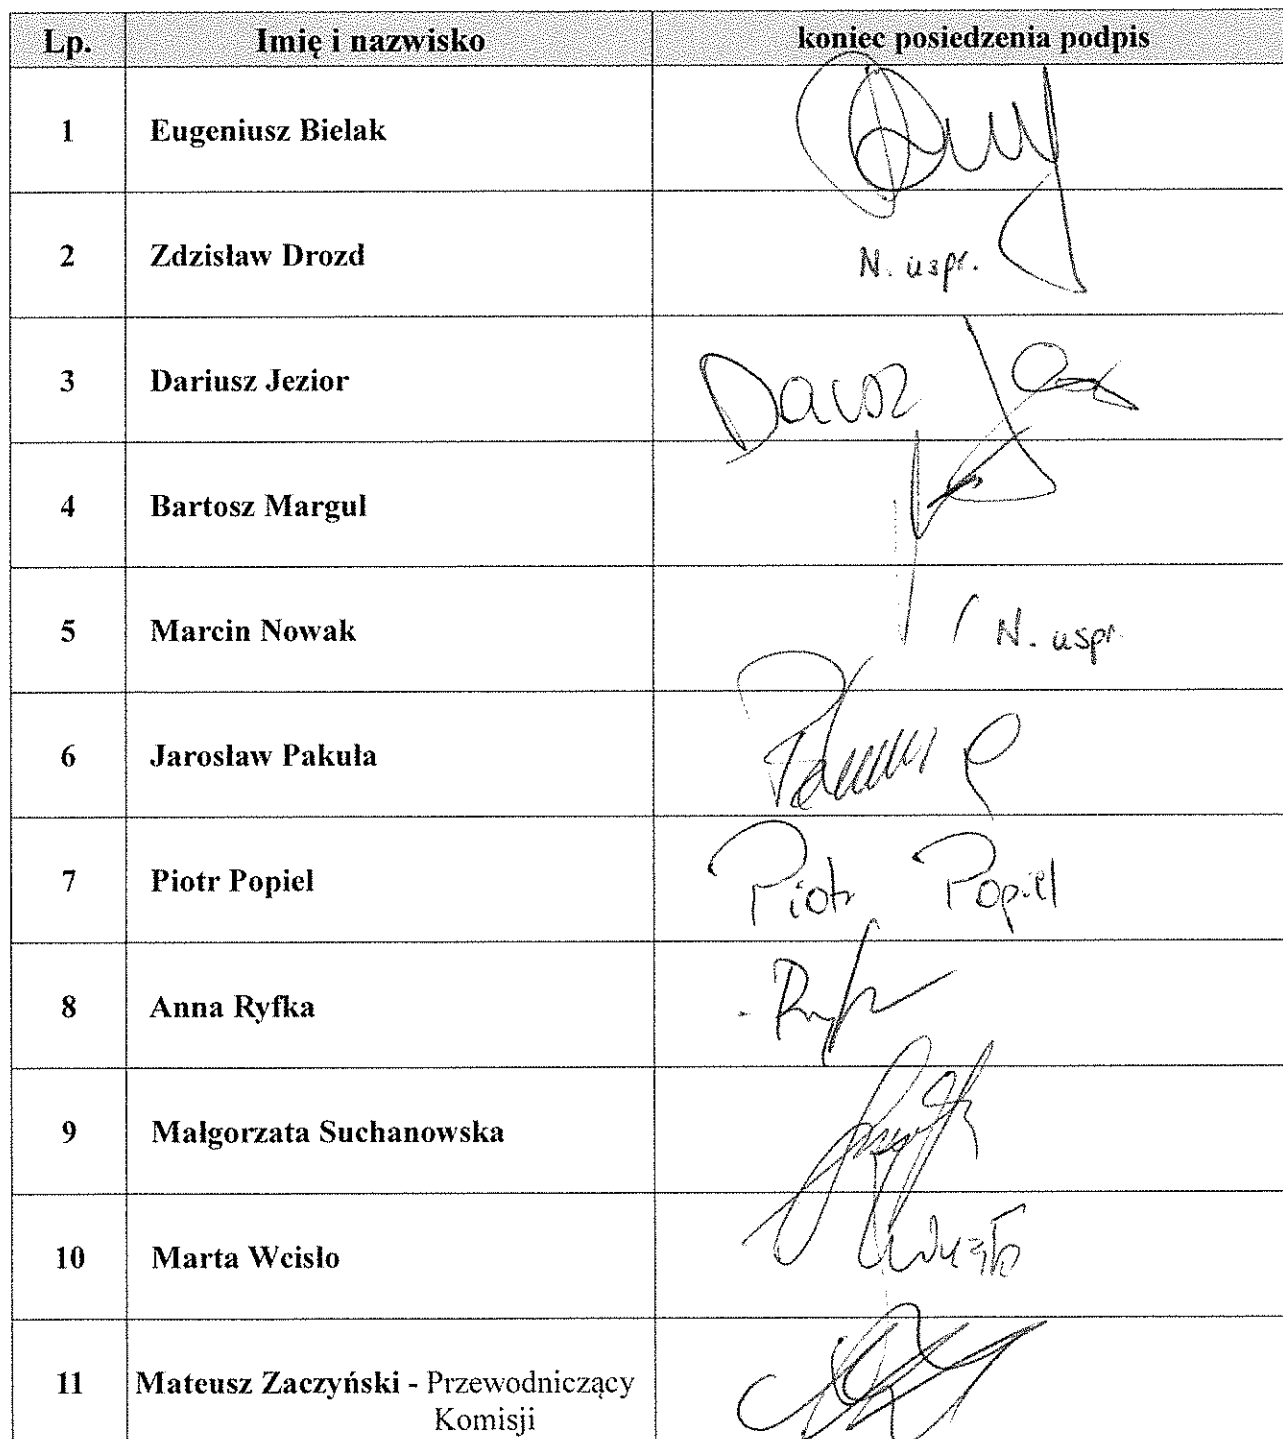 Lp. Imię i nazwisko koniec posiedzenia podpis
1 Eugeniusz Bielak
2 Zdzisław Drozd N. uspr.
3 Dariusz Jezior
4 Bartosz Margul
5 Marcin Nowak N. uspr.
6 Jarosław Pakuła
7 Piotr Popiel Piotr Popiel
8 Anna Ryfka
9 Małgorzata Suchanowska
10 Marta Wcisło
11 Mateusz Zaczyński - Przewodniczący
Komisji